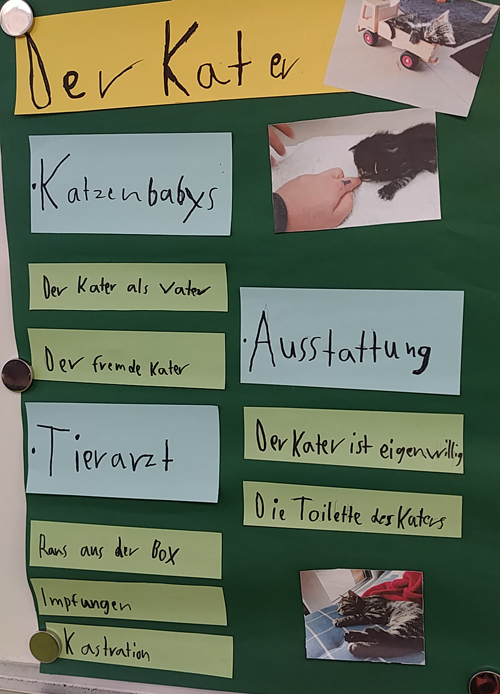 Der Kater
·Katzenbabys
Der Kater als Vater
Der fremde Kater
·Tierarzt
Raus aus der Box
Impfungen
Kastration
·Ausstattung
Der Kater ist eigenwillig
Die Toilette des Katers